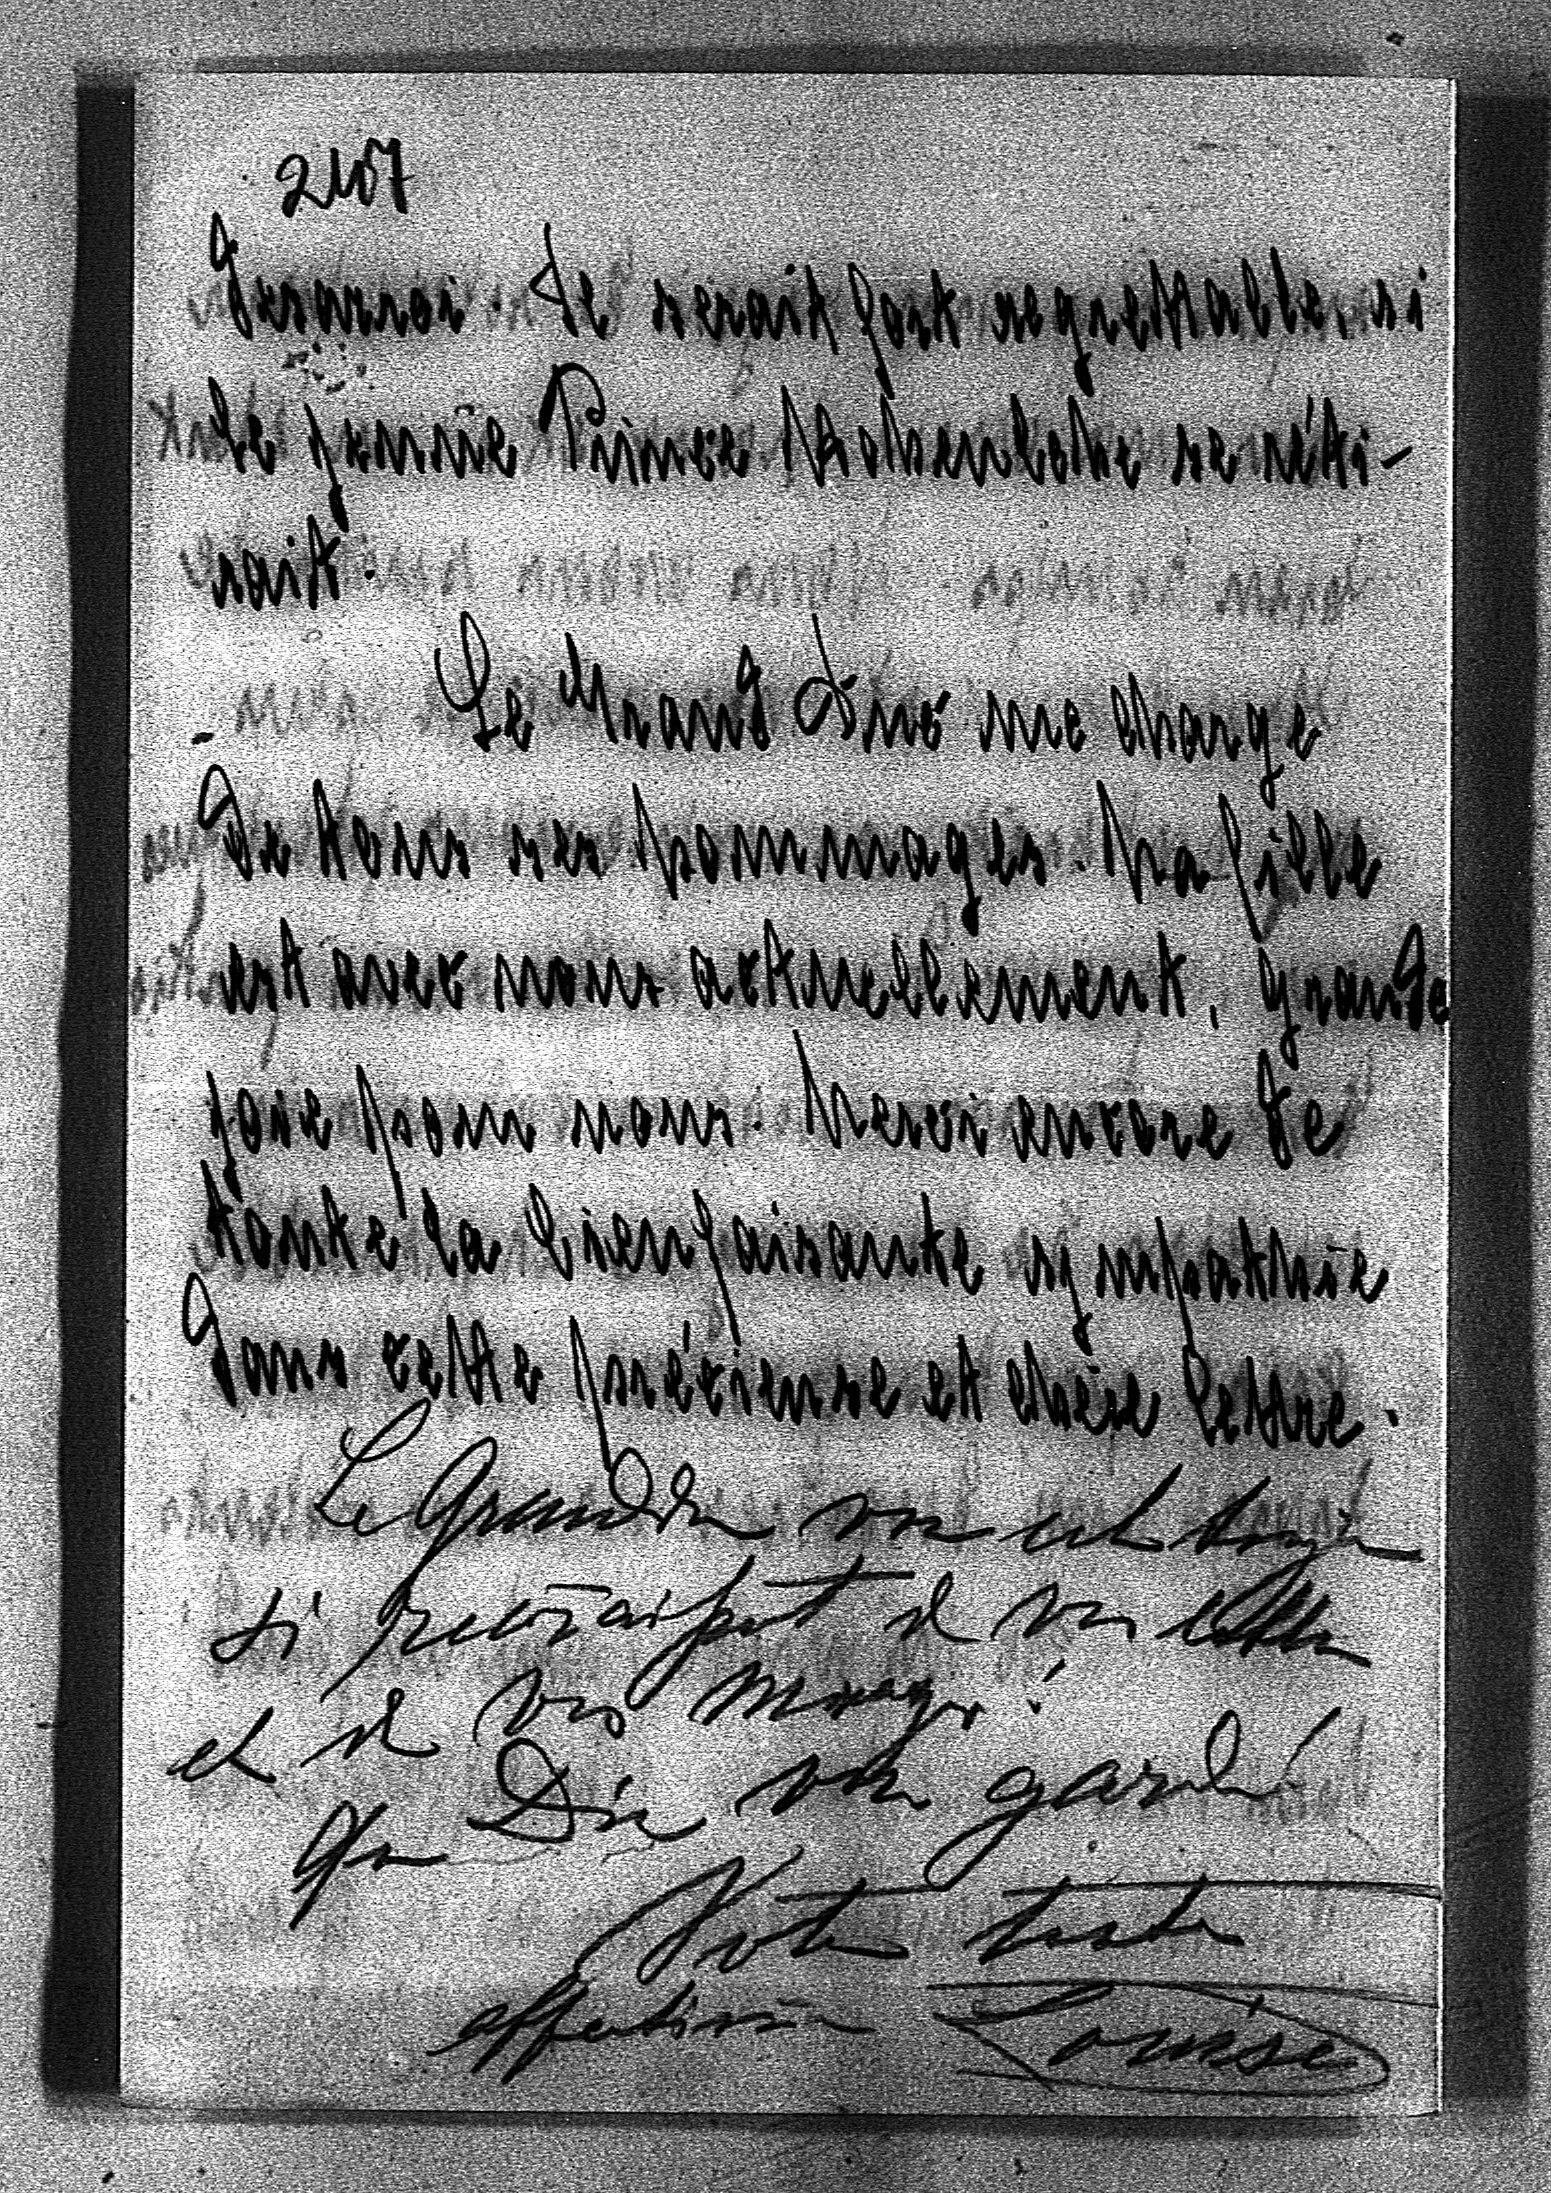 2457
Desarroi. Ce serait fort regrettable, si
le jeune Prince Hohenlohe se réti-
rait.
Le Grand Duc me charge
De tous ses hommages. Ma fille
est avec nous actuellement, grande
joie pour nous. Merci encore de
toute la bienfaisante sympathie
Dans cette précieuse et chère lettre.
Le Grand Duc vous est
si de vos lettres
et de vos
Que Dieu vous garde!
Votre toute
affectionnée Louise